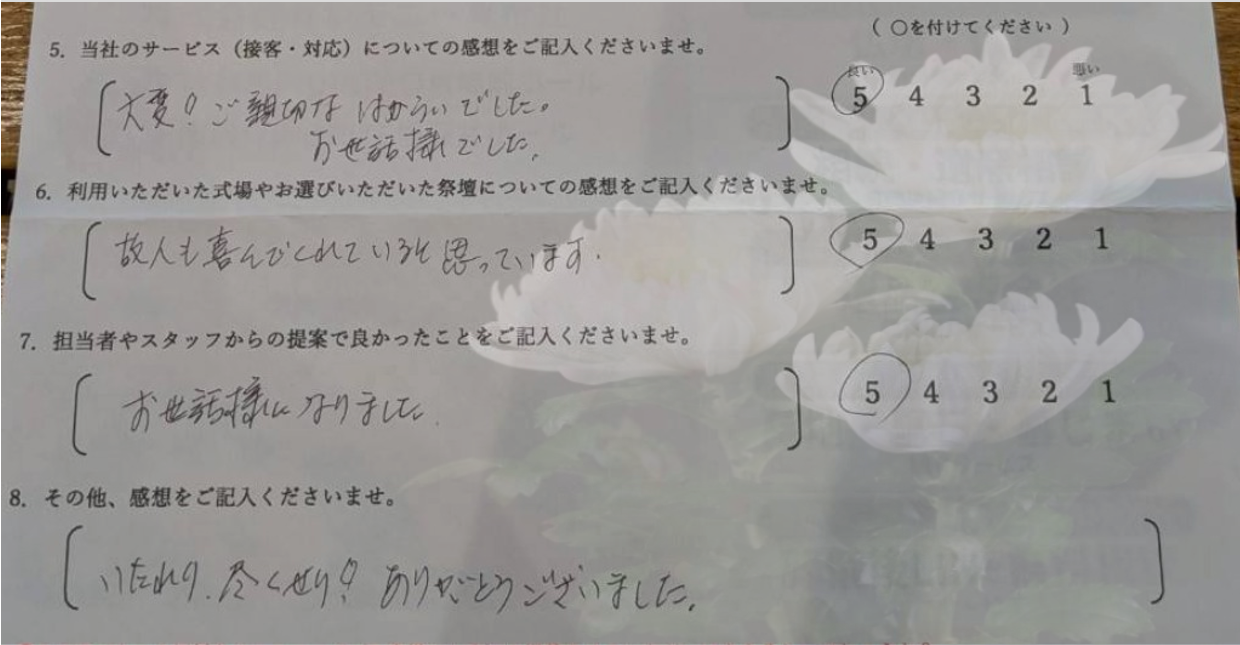 （ ○を付けてください ）
5. 当社のサービス（接客・対応）についての感想をご記入くださいませ。
良い 悪い
5 4 3 2 1
大変！ご親切なはからいでした。
お世話様でした。
6. 利用いただいた式場やお選びいただいた祭壇についての感想をご記入くださいませ。
5 4 3 2 1
故人も喜んでくれていると思っています.
7. 担当者やスタッフからの提案で良かったことをご記入くださいませ。
5 4 3 2 1
お世話様になりました.
8. その他、感想をご記入くださいませ。
いたれり、尽くせり！ありがとうございました。